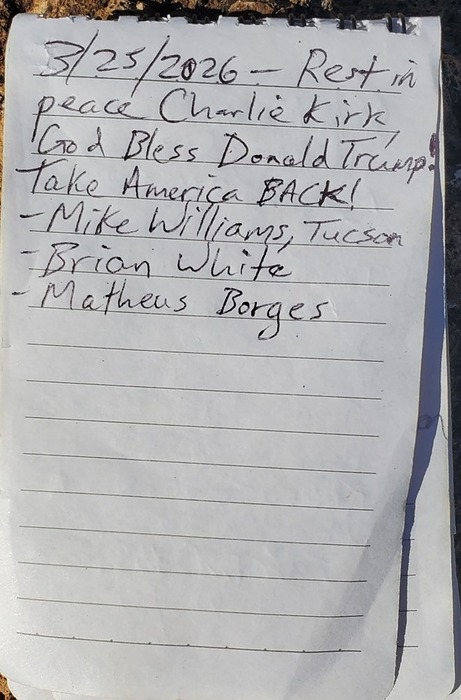 3/25/2026 - Rest in
peace Charlie Kirk,
God Bless Donald Trump!
Take America BACK!
- Mike Williams, Tucson
- Brian White
- Matheus Borges